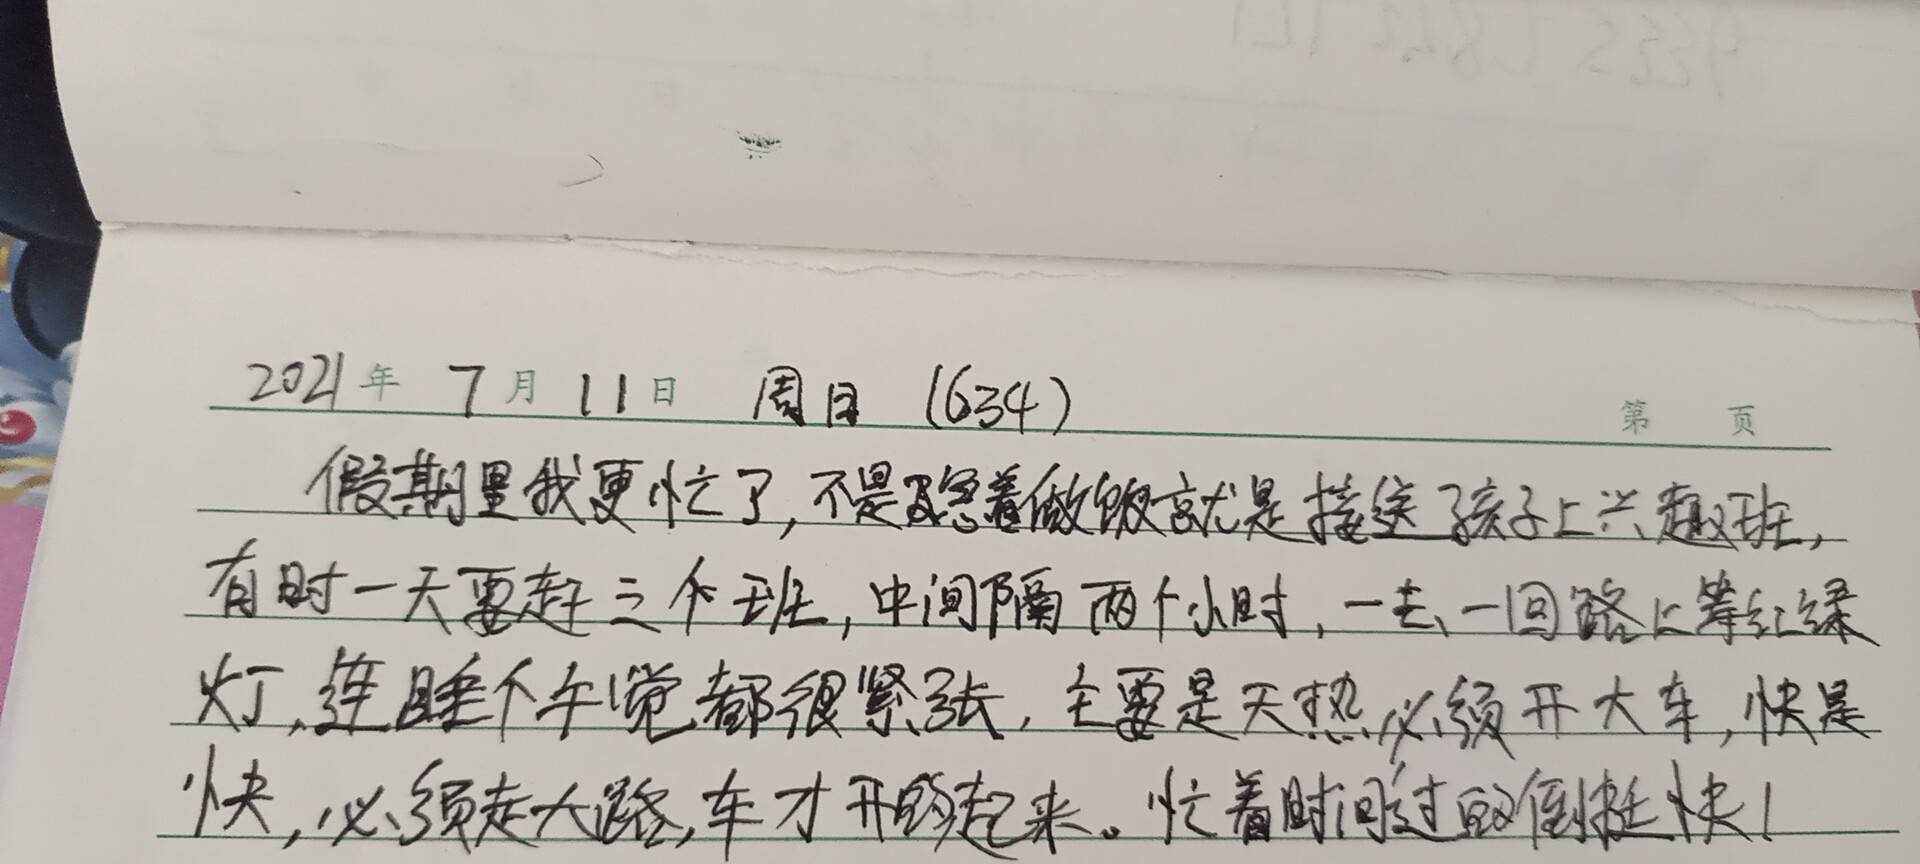 2021年 7月 11日 周日 (634) 第 页
假期里我更忙了,不是忍急着做饭就是接送孩子上兴趣班,
有时一天要赶三个班,中间隔两个小时,一去、一回路上等红绿
灯,连睡个午觉都很紧张,主要是天热必须开大车,快是
快,必须走大路,车才开的起来。忙着时间过的倒挺快!